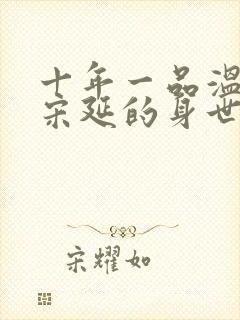 十年一品温
宋延的身世
宋耀如